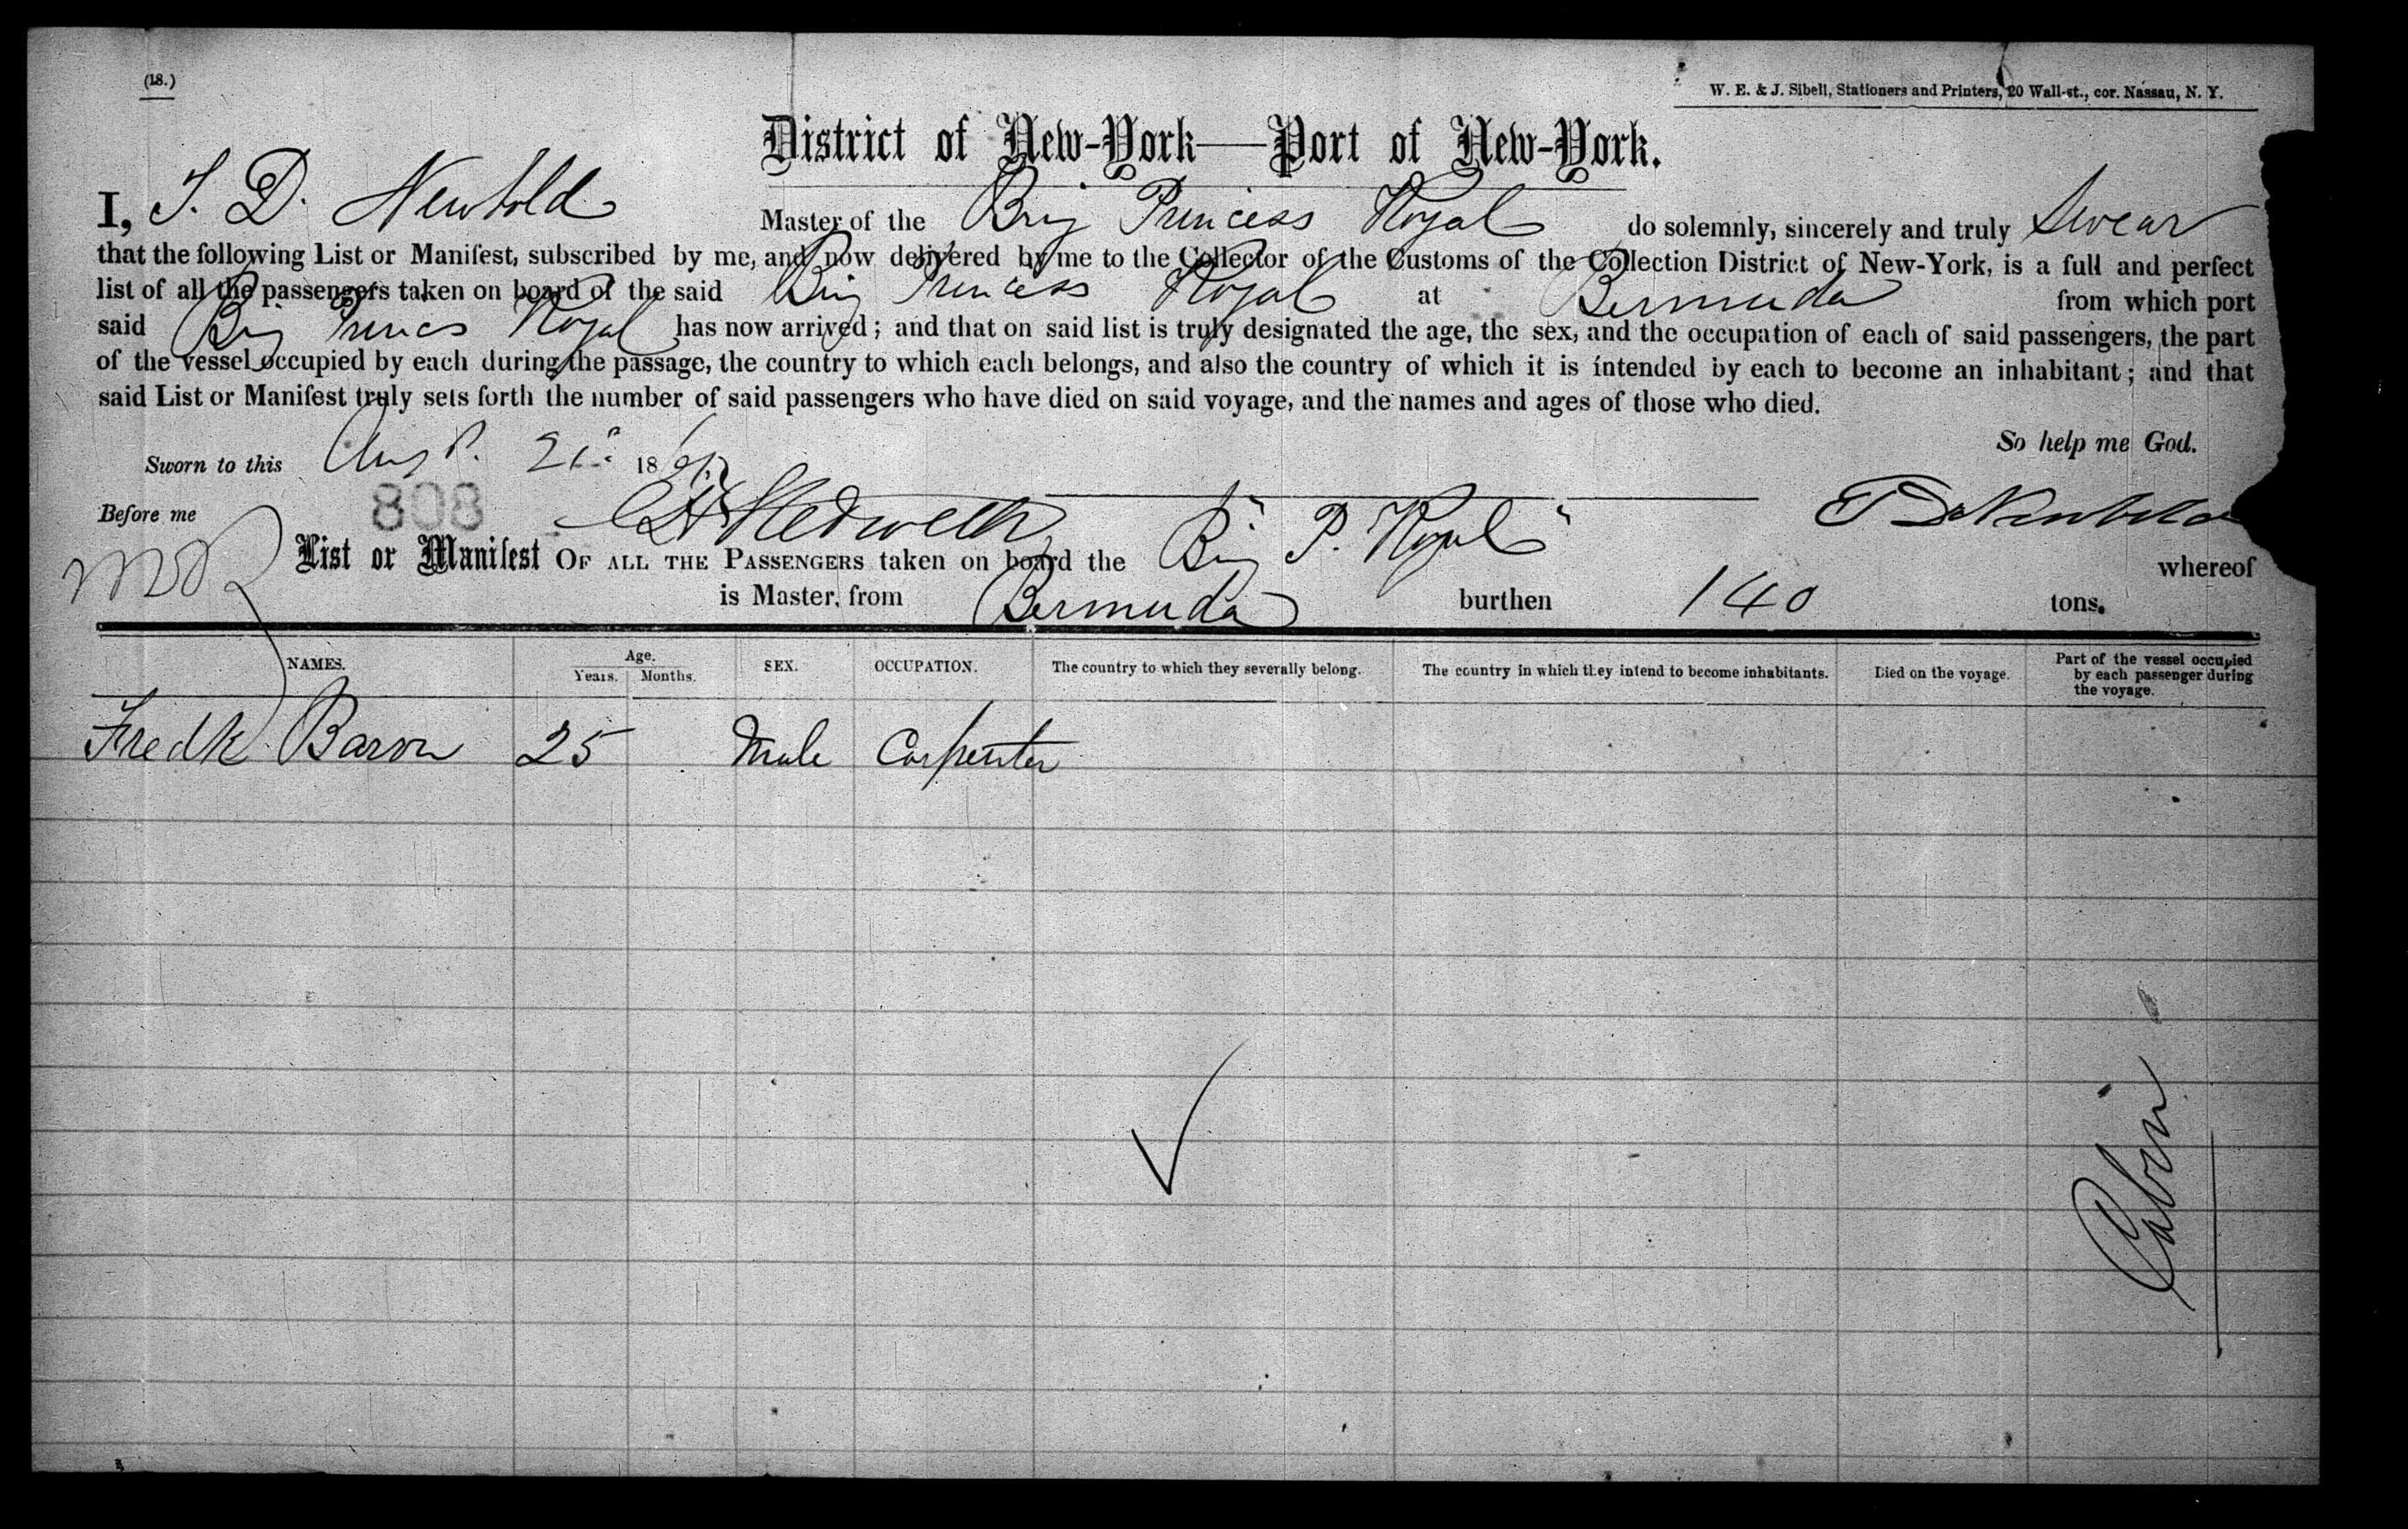 (18.)
W. E. & J. Sibell, Stationers and Printers, 20 Wall-st., cor. Nassau, N. Y.
District of New-York—Port of New-York.
I, T. D. Newbold Master of the Brig Princess Royal do solemnly, sincerely and truly Swear
that the following List or Manifest, subscribed by me, and now delivered by me to the Collector of the Customs of the Collection District of New-York, is a full and perfect
list of all the passengers taken on board of the said Brig Princess Royal at Bermuda from which port
said Brig Princes Royal has now arrived; and that on said list is truly designated the age, the sex, and the occupation of each of said passengers, the part
of the vessel occupied by each during the passage, the country to which each belongs, and also the country of which it is intended by each to become an inhabitant; and that
said List or Manifest truly sets forth the number of said passengers who have died on said voyage, and the names and ages of those who died.
So help me God.
Sworn to this Augt. 21st 18
808
Before me T D Newbold
List or Manifest OF ALL THE PASSENGERS taken on board the Brig "P. Royal" whereof
is Master, from Bermuda burthen 140 tons.
NAMES. Age. Years. Months. SEX. OCCUPATION. The country to which they severally belong. The country in which they intend to become inhabitants. Died on the voyage. Part of the vessel occupied by each passenger during the voyage.
Fredk Baron 25 Male Carpenter
Cabin